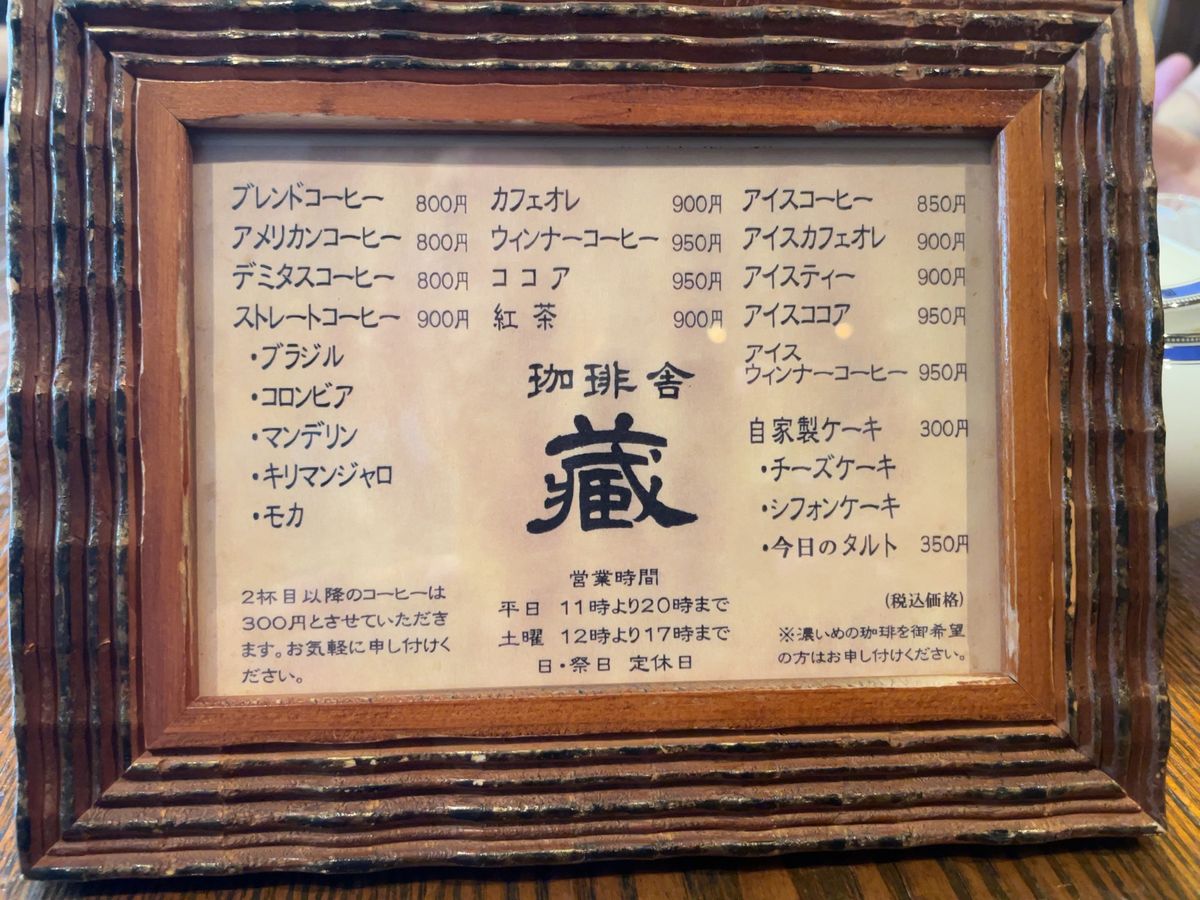 ブレンドコーヒー 800円
アメリカンコーヒー 800円
デミタスコーヒー 800円
ストレートコーヒー 900円
・ブラジル
・コロンビア
・マンデリン
・キリマンジャロ
・モカ
2杯目以降のコーヒーは
300円とさせていただき
ます。お気軽に申し付けく
ださい。
カフェオレ 900円
ウィンナーコーヒー 950円
ココア 950円
紅茶 900円
珈琲舎
蔵
営業時間
平日 11時より20時まで
土曜 12時より17時まで
日・祭日 定休日
アイスコーヒー 850円
アイスカフェオレ 900円
アイスティー 900円
アイスココア 950円
アイス
ウィンナーコーヒー 950円
自家製ケーキ 300円
・チーズケーキ
・シフォンケーキ
・今日のタルト 350円
(税込価格)
※濃いめの珈琲を御希望
の方はお申し付けください。